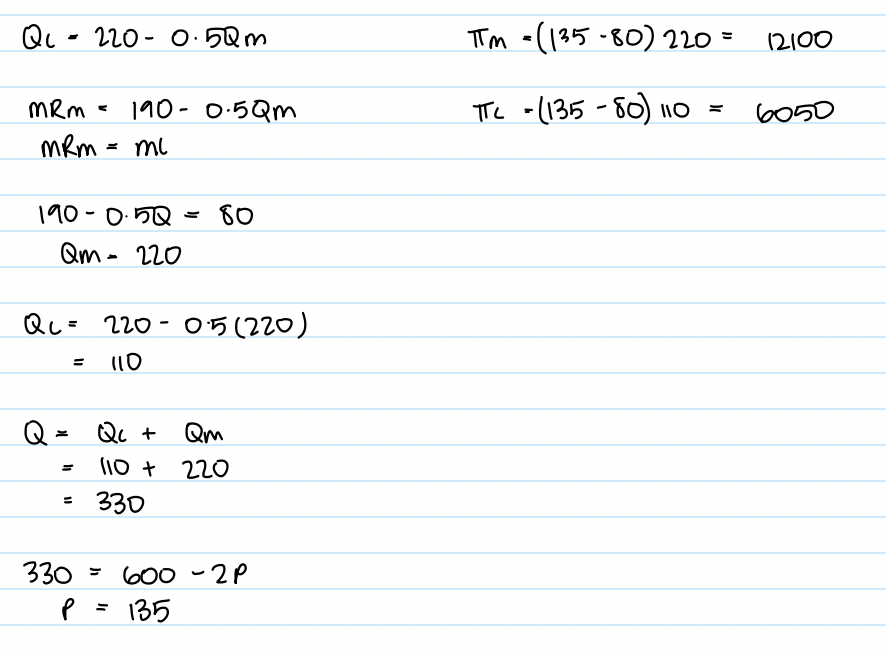 Qc = 220 - 0.5Qm
MRm = 190 - 0.5Qm
MRm = MC
190 - 0.5Q = 80
Qm = 220
Qc = 220 - 0.5(220)
= 110
Q = Qc + Qm
= 110 + 220
= 330
330 = 600 - 2P
P = 135
πm = (135 - 80) 220 = 12100
πc = (135 - 80) 110 = 6050